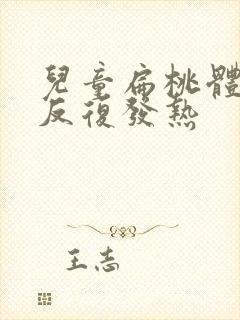 兒童扁桃體
反復發熱
王志